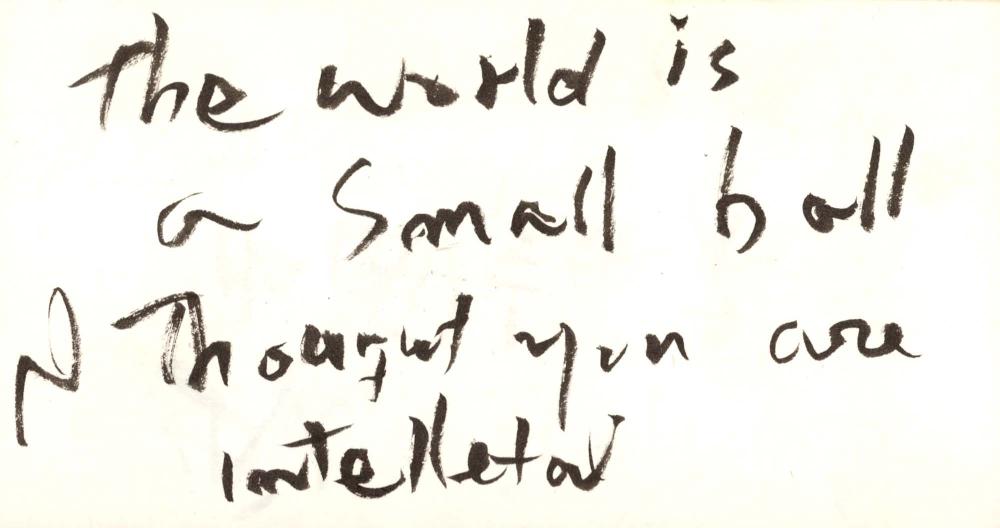 the world is
a small ball
I Thought you are
intelletal